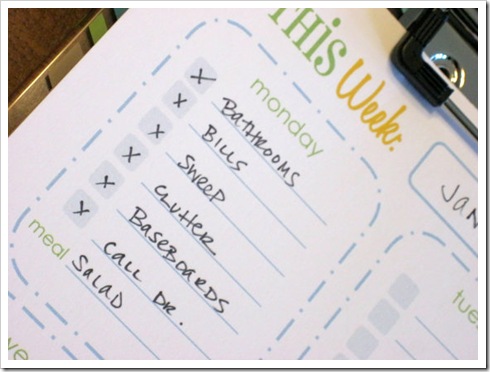 THIS Week:
JAN
monday
X BATHROOMS
X BILLS
X SWEEP
X CLUTTER
X BASEBOARDS
X CALL DR.
meal SALAD
tue